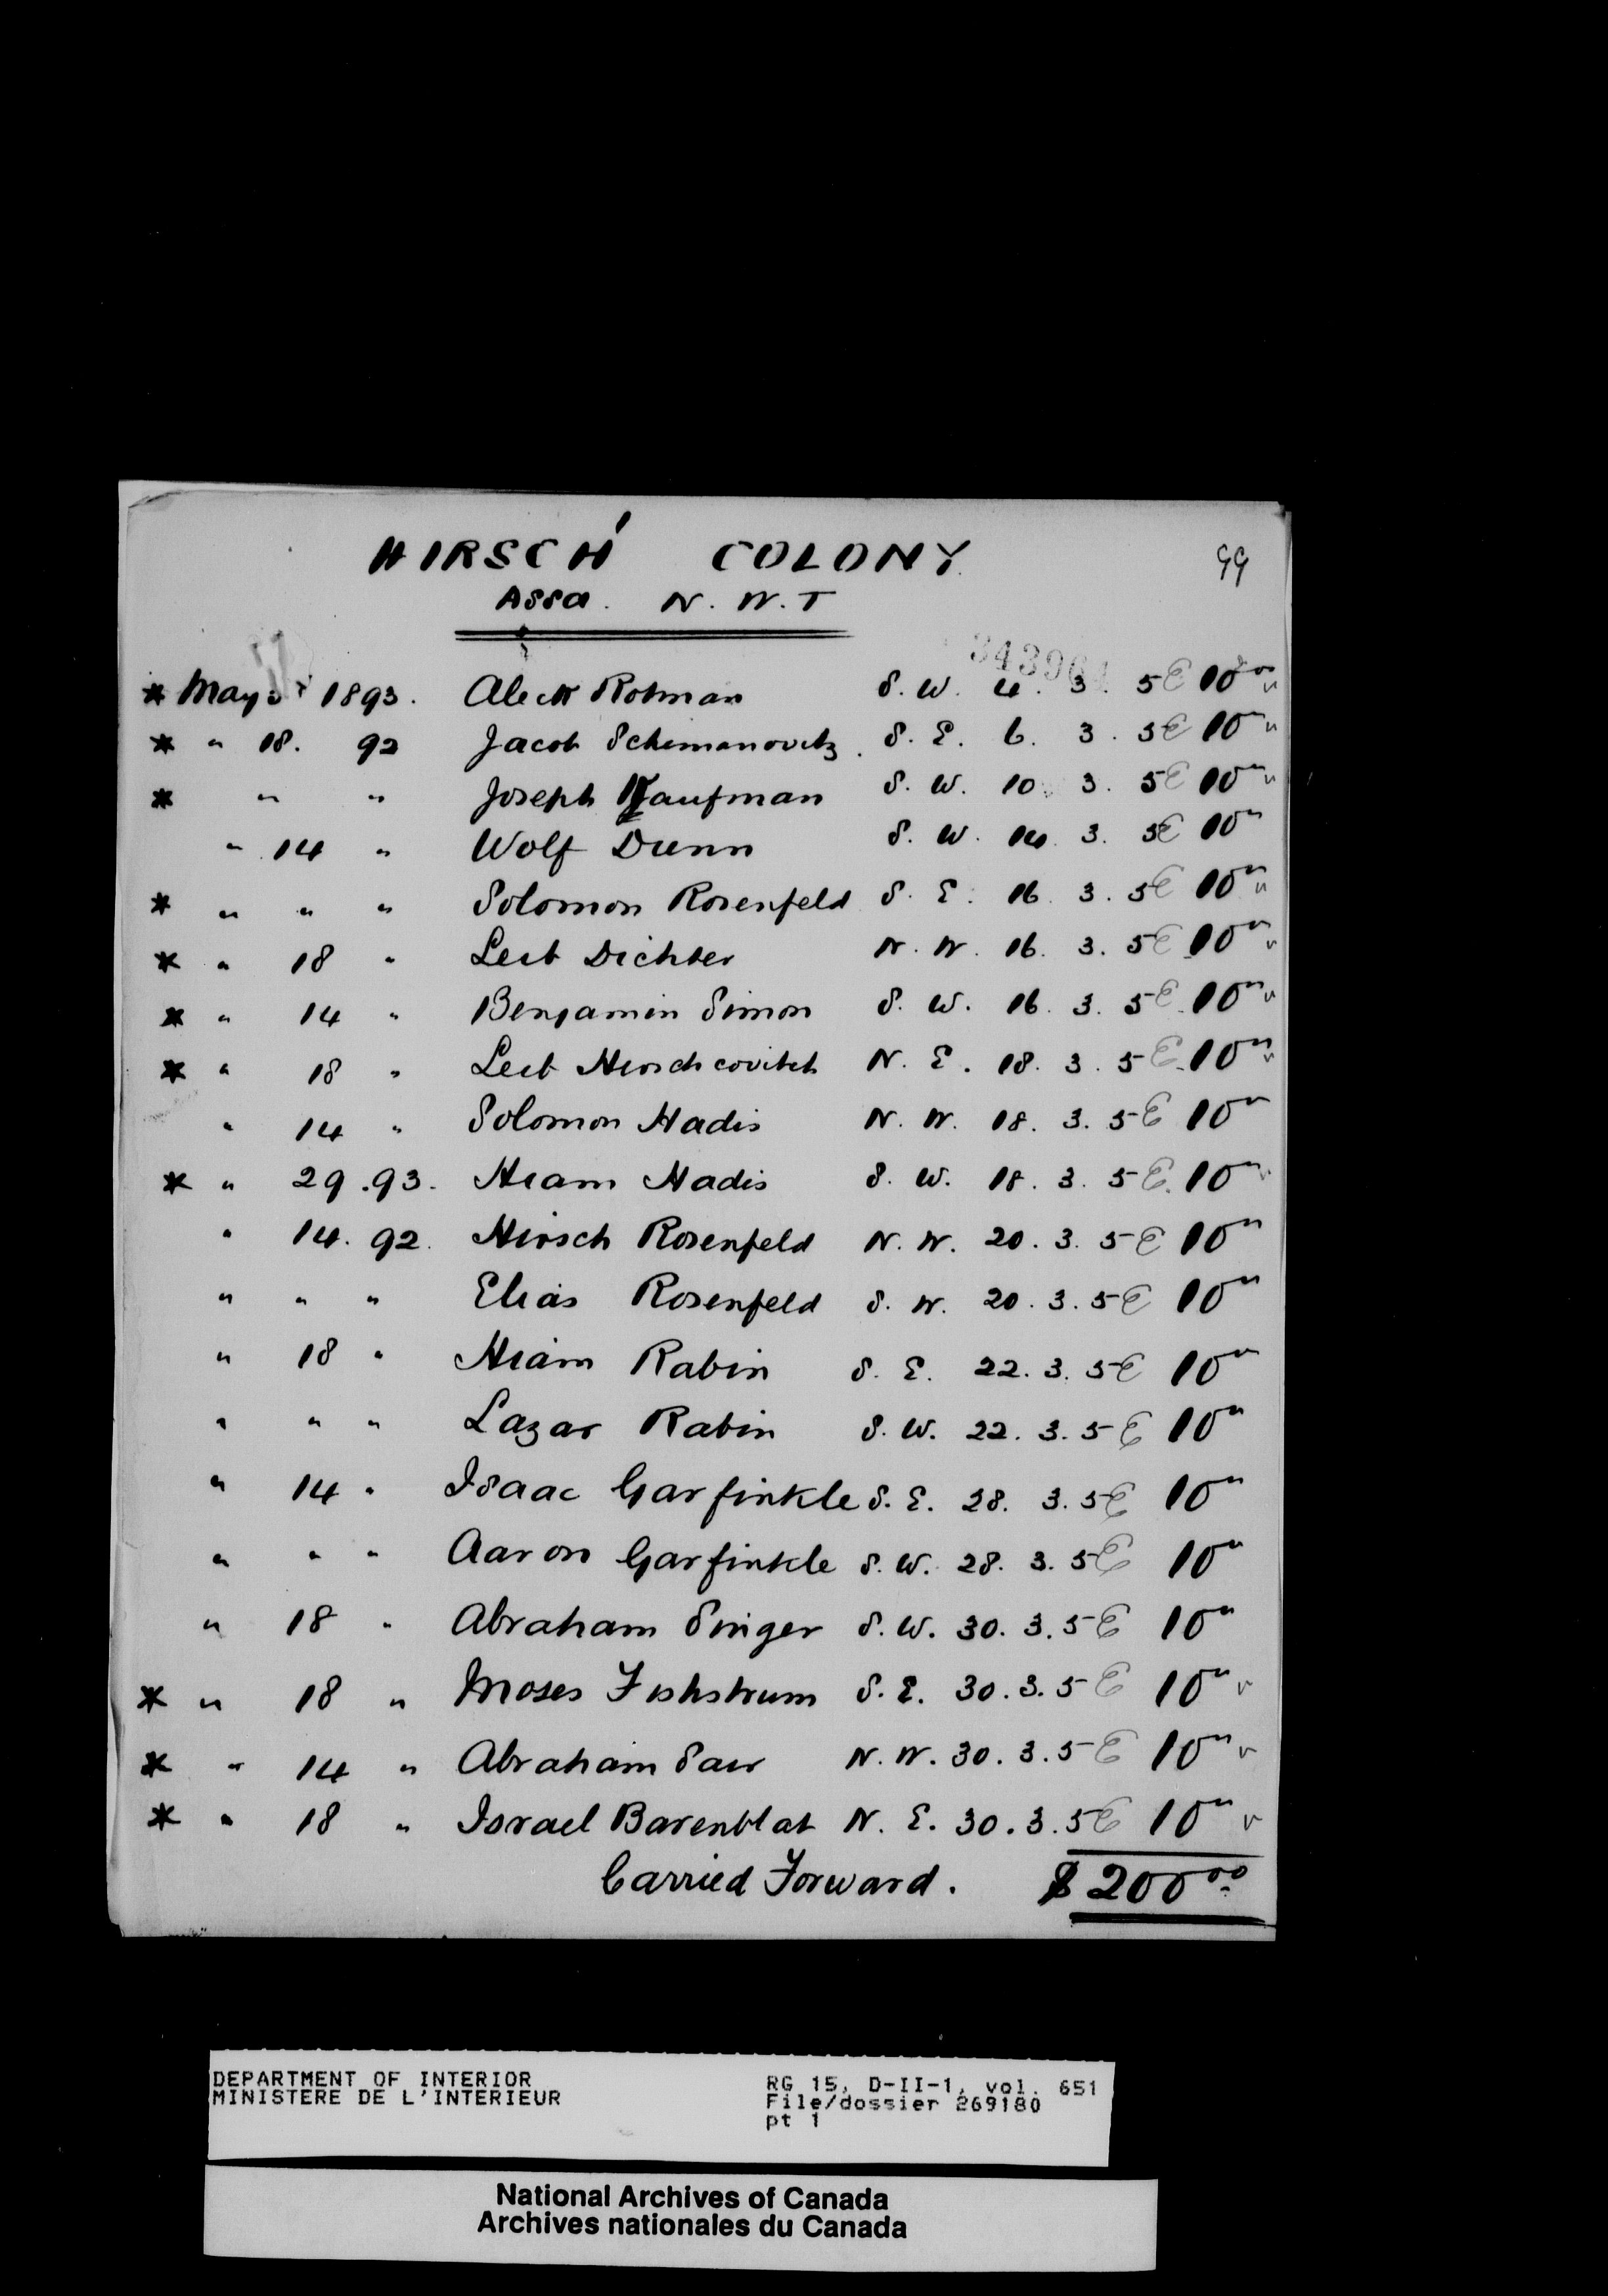 HIRSCH COLONY
99
Assa. N. W. T
* May 1893. Aleck Rotman S. W. 4. 3. 5 E 10 00 "
* " 18. 92 Jacob Schemanovitz. S. E. 6. 3. 5 E 10 " "
* " " Joseph Kaufman S. W. 10 3. 5 E 10 " "
" 14 " Wolf Dunn S. W. 14. 3. 5 E 10 "
* " " " Solomon Rosenfeld S. E. 16. 3. 5 E 10 " "
* " 18 " Leib Dichter N. W. 16. 3. 5 E 10 " v
* " 14 " Benjamin Simon S. W. 16. 3. 5 E 10 " v
* " 18 " Leib Hirschcovitch N. E. 18. 3. 5 E 10 " v
" 14 " Solomon Hadis N. W. 18. 3. 5 E 10 "
* " 29. 93. Hiam Hadis S. W. 18. 3. 5 E 10 " v
" 14. 92. Hirsch Rosenfeld N. W. 20. 3. 5 E 10 "
" " " Elias Rosenfeld S. W. 20. 3. 5 E 10 "
" 18 " Hiam Rabin S. E. 22. 3. 5 E 10 "
" " " Lazar Rabin S. W. 22. 3. 5 E 10 "
" 14 " Isaac Garfinkle S. E. 28. 3. 5 E 10 "
" " " Aaron Garfinkle S. W. 28. 3. 5 E 10 "
" 18 " Abraham Singer S. W. 30. 3. 5 E 10 "
* " 18 " Moses Fishstrum S. E. 30. 3. 5 E 10 " v
* " 14 " Abraham N. W. 30. 3. 5 E 10 " v
* " 18 " Israel Barenblat N. E. 30. 3. 5 E 10 " v
Carried Forward. $ 200 00
DEPARTMENT OF INTERIOR
MINISTERE DE L'INTERIEUR
RG 15, D-II-1, vol. 651
File/dossier 269180
pt 1
National Archives of Canada
Archives nationales du Canada